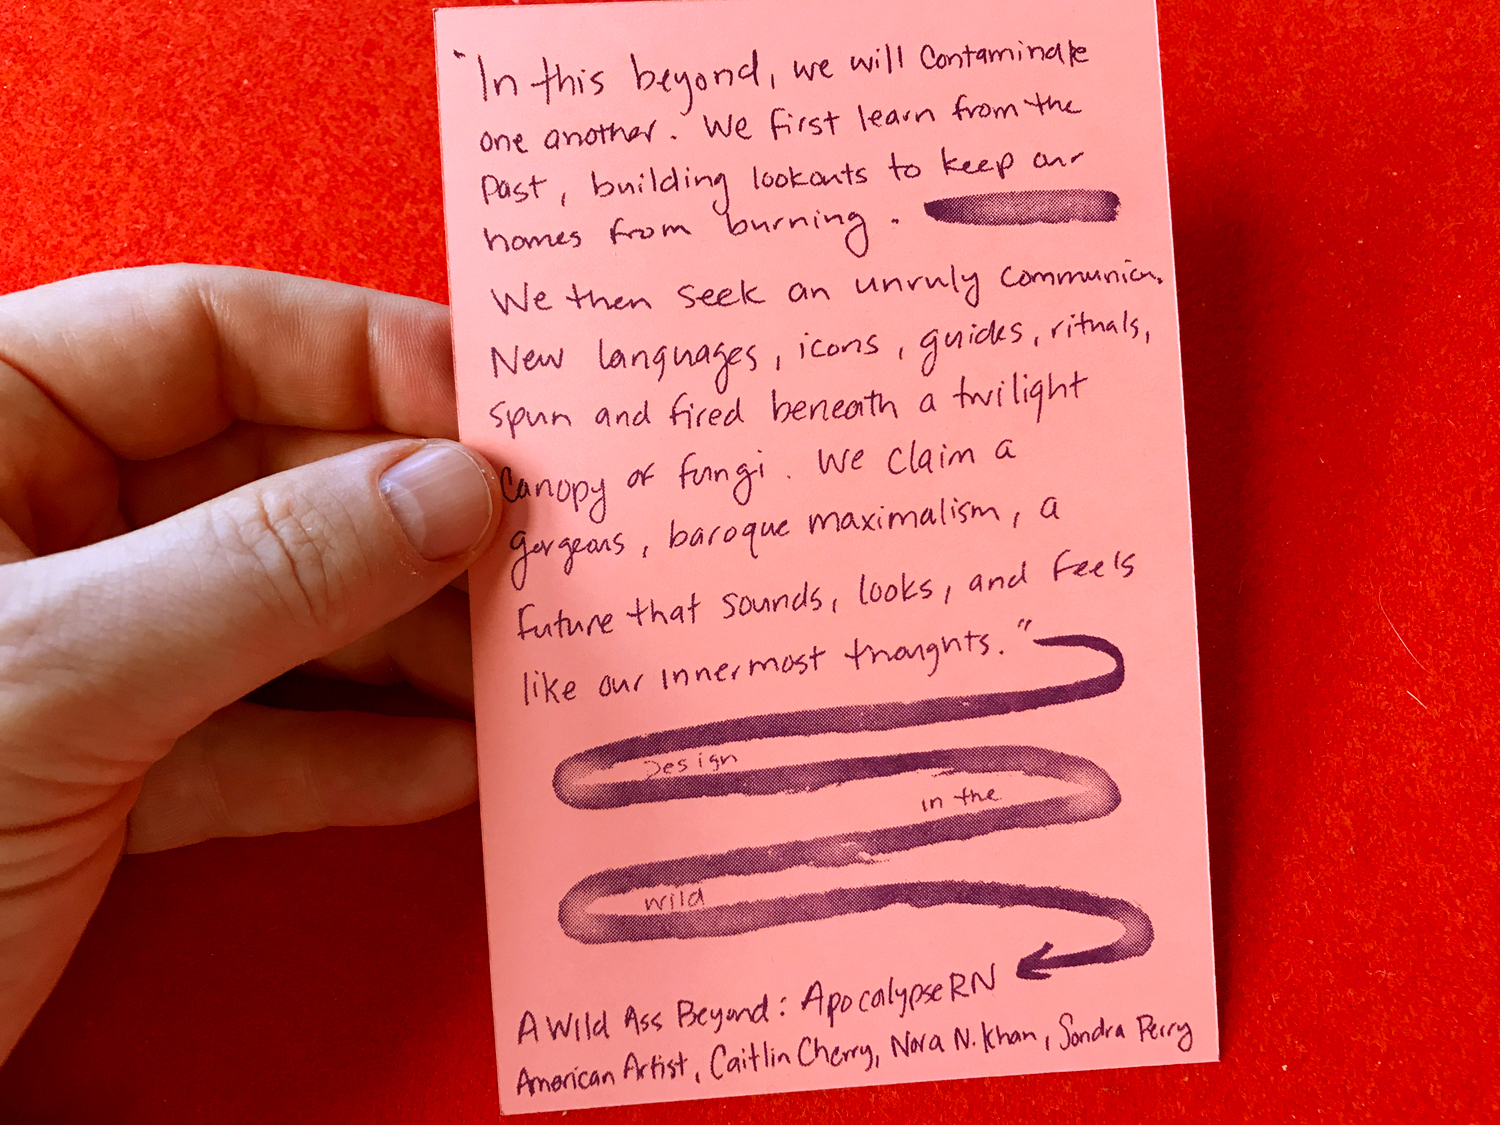 "In this beyond, we will contaminate
one another. We first learn from the
past, building lookouts to keep our
homes from burning.
We then seek an unruly communion.
New languages, icons, guides, rituals,
spun and fired beneath a twilight
canopy of fungi. We claim a
gorgeous, baroque maximalism, a
future that sounds, looks, and feels
like our innermost thoughts."
Design
in the
wild
A Wild Ass Beyond: ApocalypseRN
American Artist, Caitlin Cherry, Nora N. Khan, Sondra Perry